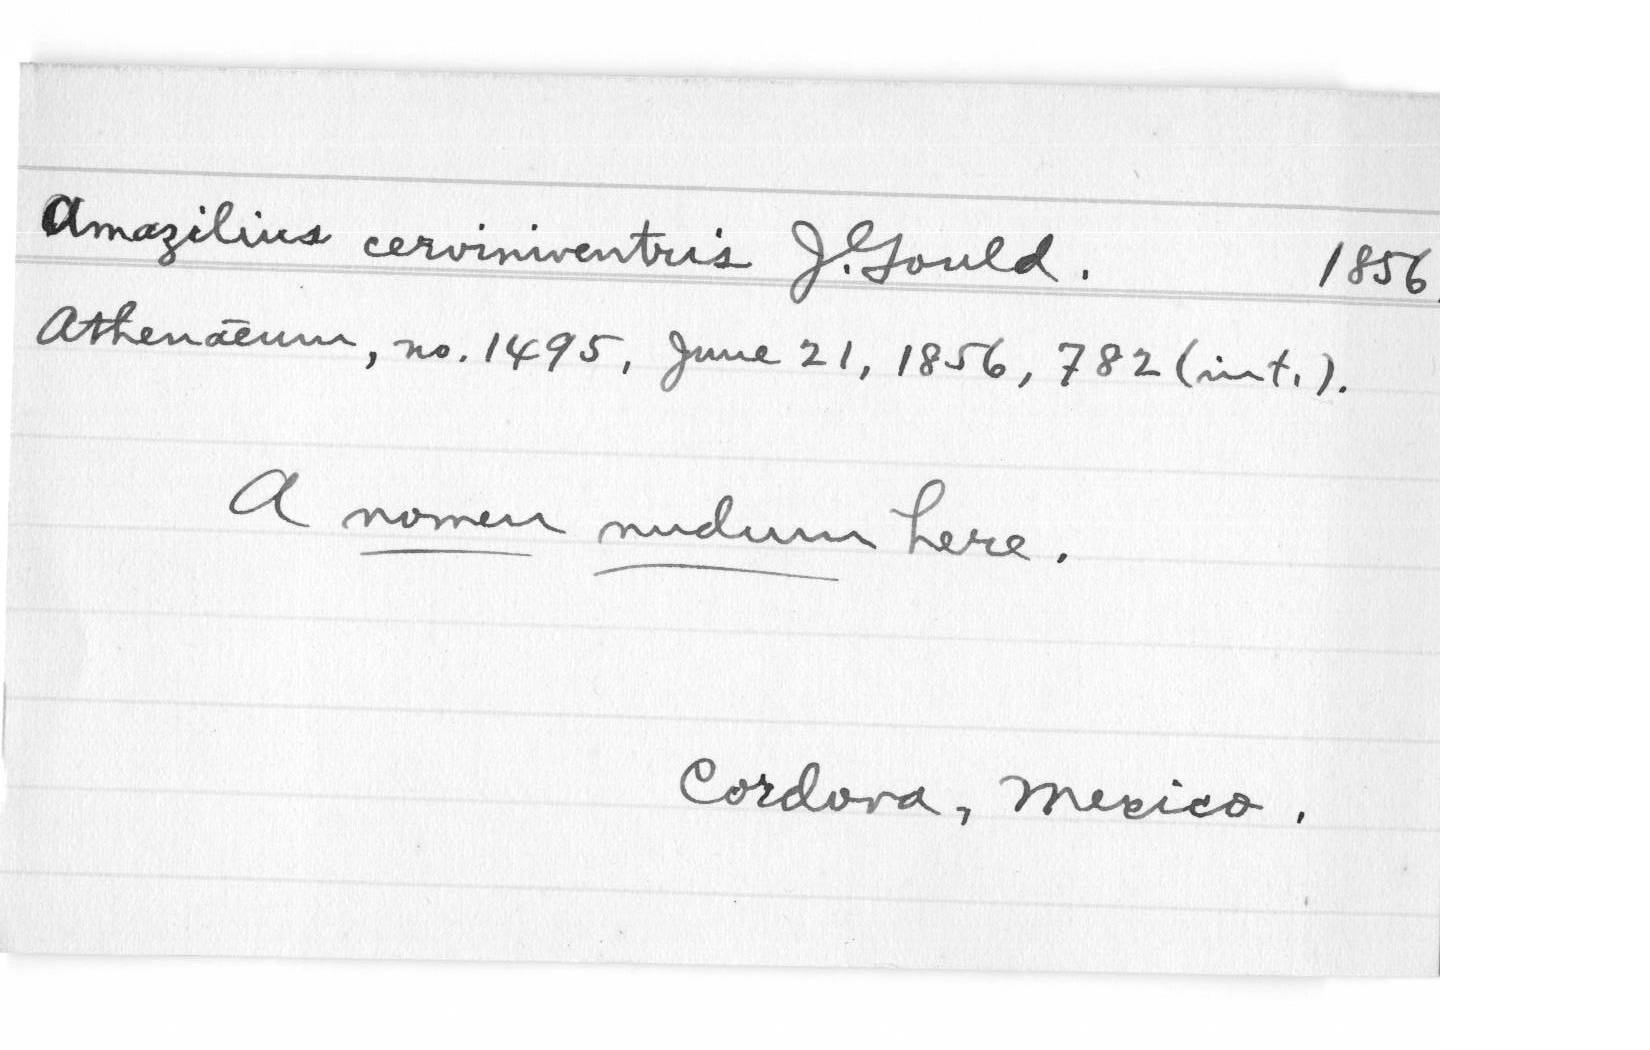 Amazilius cerviniventris J. Gould. 1856.
Athenaeum, no. 1495, June 21, 1856, 782 (int.).
A nomen nudum here.
Cordova, Mexico.